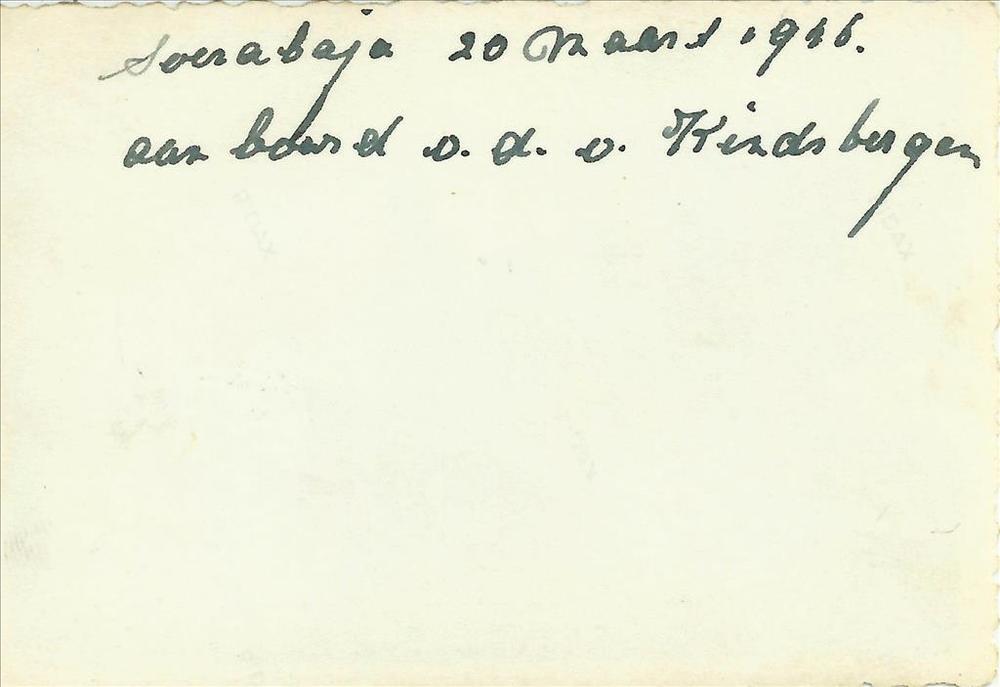 Soerabaja 20 Maart 1946.
aan boord v. d. v. Kinsbergen